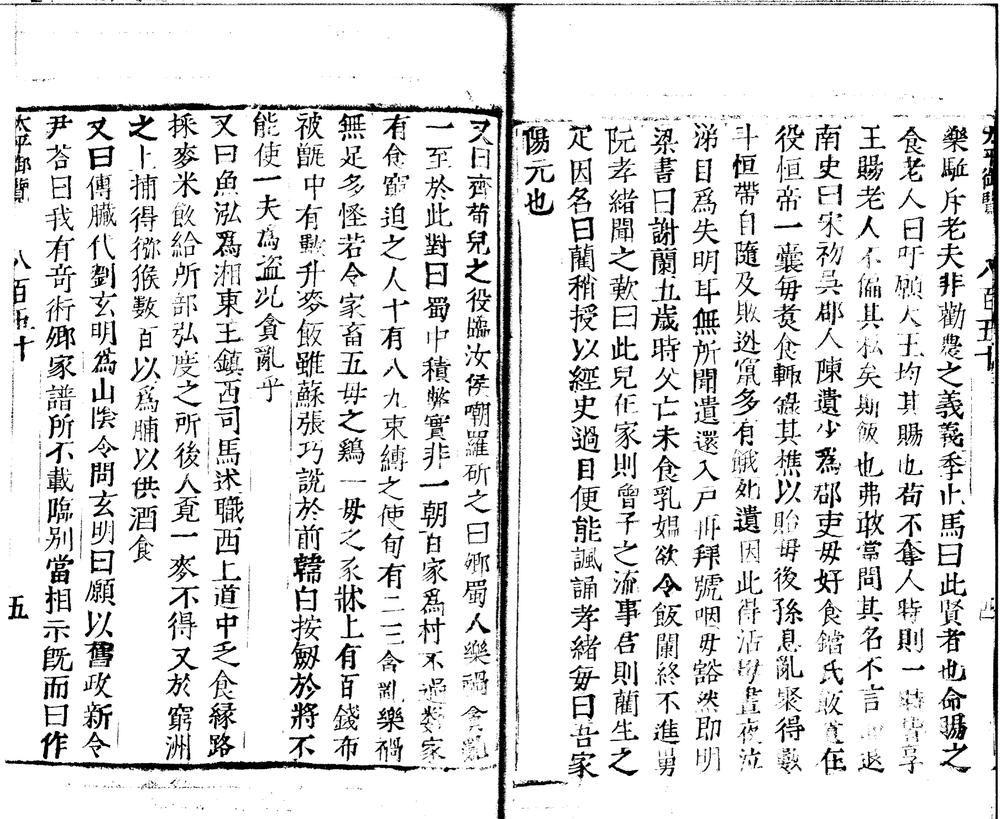 太平御覽 八百五十 四
樂駈斥老夫非勸農之義義季止馬曰此賢者也命賜之
食老人曰吁願大王均其賜也苟不奪人時則一時皆享
王賜老人不偏其私矣斯飯也弗敢當問其名不言而退
南史曰宋初吳郡人陳遺少爲郡吏母好食鐺底飯遺在
役恒帶一囊每煑食輙錄其樵以貽母後孫恩亂聚得數
斗恒帶自隨及敗逃竄多有餓死遺因此得活母晝夜泣
涕目爲失明耳無所聞遺還入戶再拜號咽母豁然即明
梁書曰謝蘭五歲時父亡未食乳媪欲令飯闌終不進舅
阮孝緒聞之歎曰此兒在家則曾子之流事君則藺生之
疋因名曰藺稍授以經史過目便能諷誦孝緒每曰吾家
陽元也
又曰齊苟兒之役臨汝侯嘲羅斫之曰鄉蜀人樂禍貪亂
一至於此對曰蜀中積弊實非一朝百家爲村不過數家
有食窮迫之人十有八九束縛之使旬有二三貪亂樂禍
無足多怪若令家畜五母之鷄一母之豕牀上有百錢布
被甑中有數升麥飯雖蘇張巧說於前韓白按劒於將不
能使一夫爲盜况貪亂乎
又曰魚泓爲湘東王鎮西司馬述職西上道中乏食緣路
採麥米飲給所部弘度之所後人覓一麥不得又於窮洲
之上捕得獼猴數百以爲脯以供酒食
又曰傅臟代劉玄明爲山陰令問玄明曰願以舊政新令
尹荅曰我有竒術鄉家譜所不載臨別當相示旣而曰作
太平御覽 八百五十 五